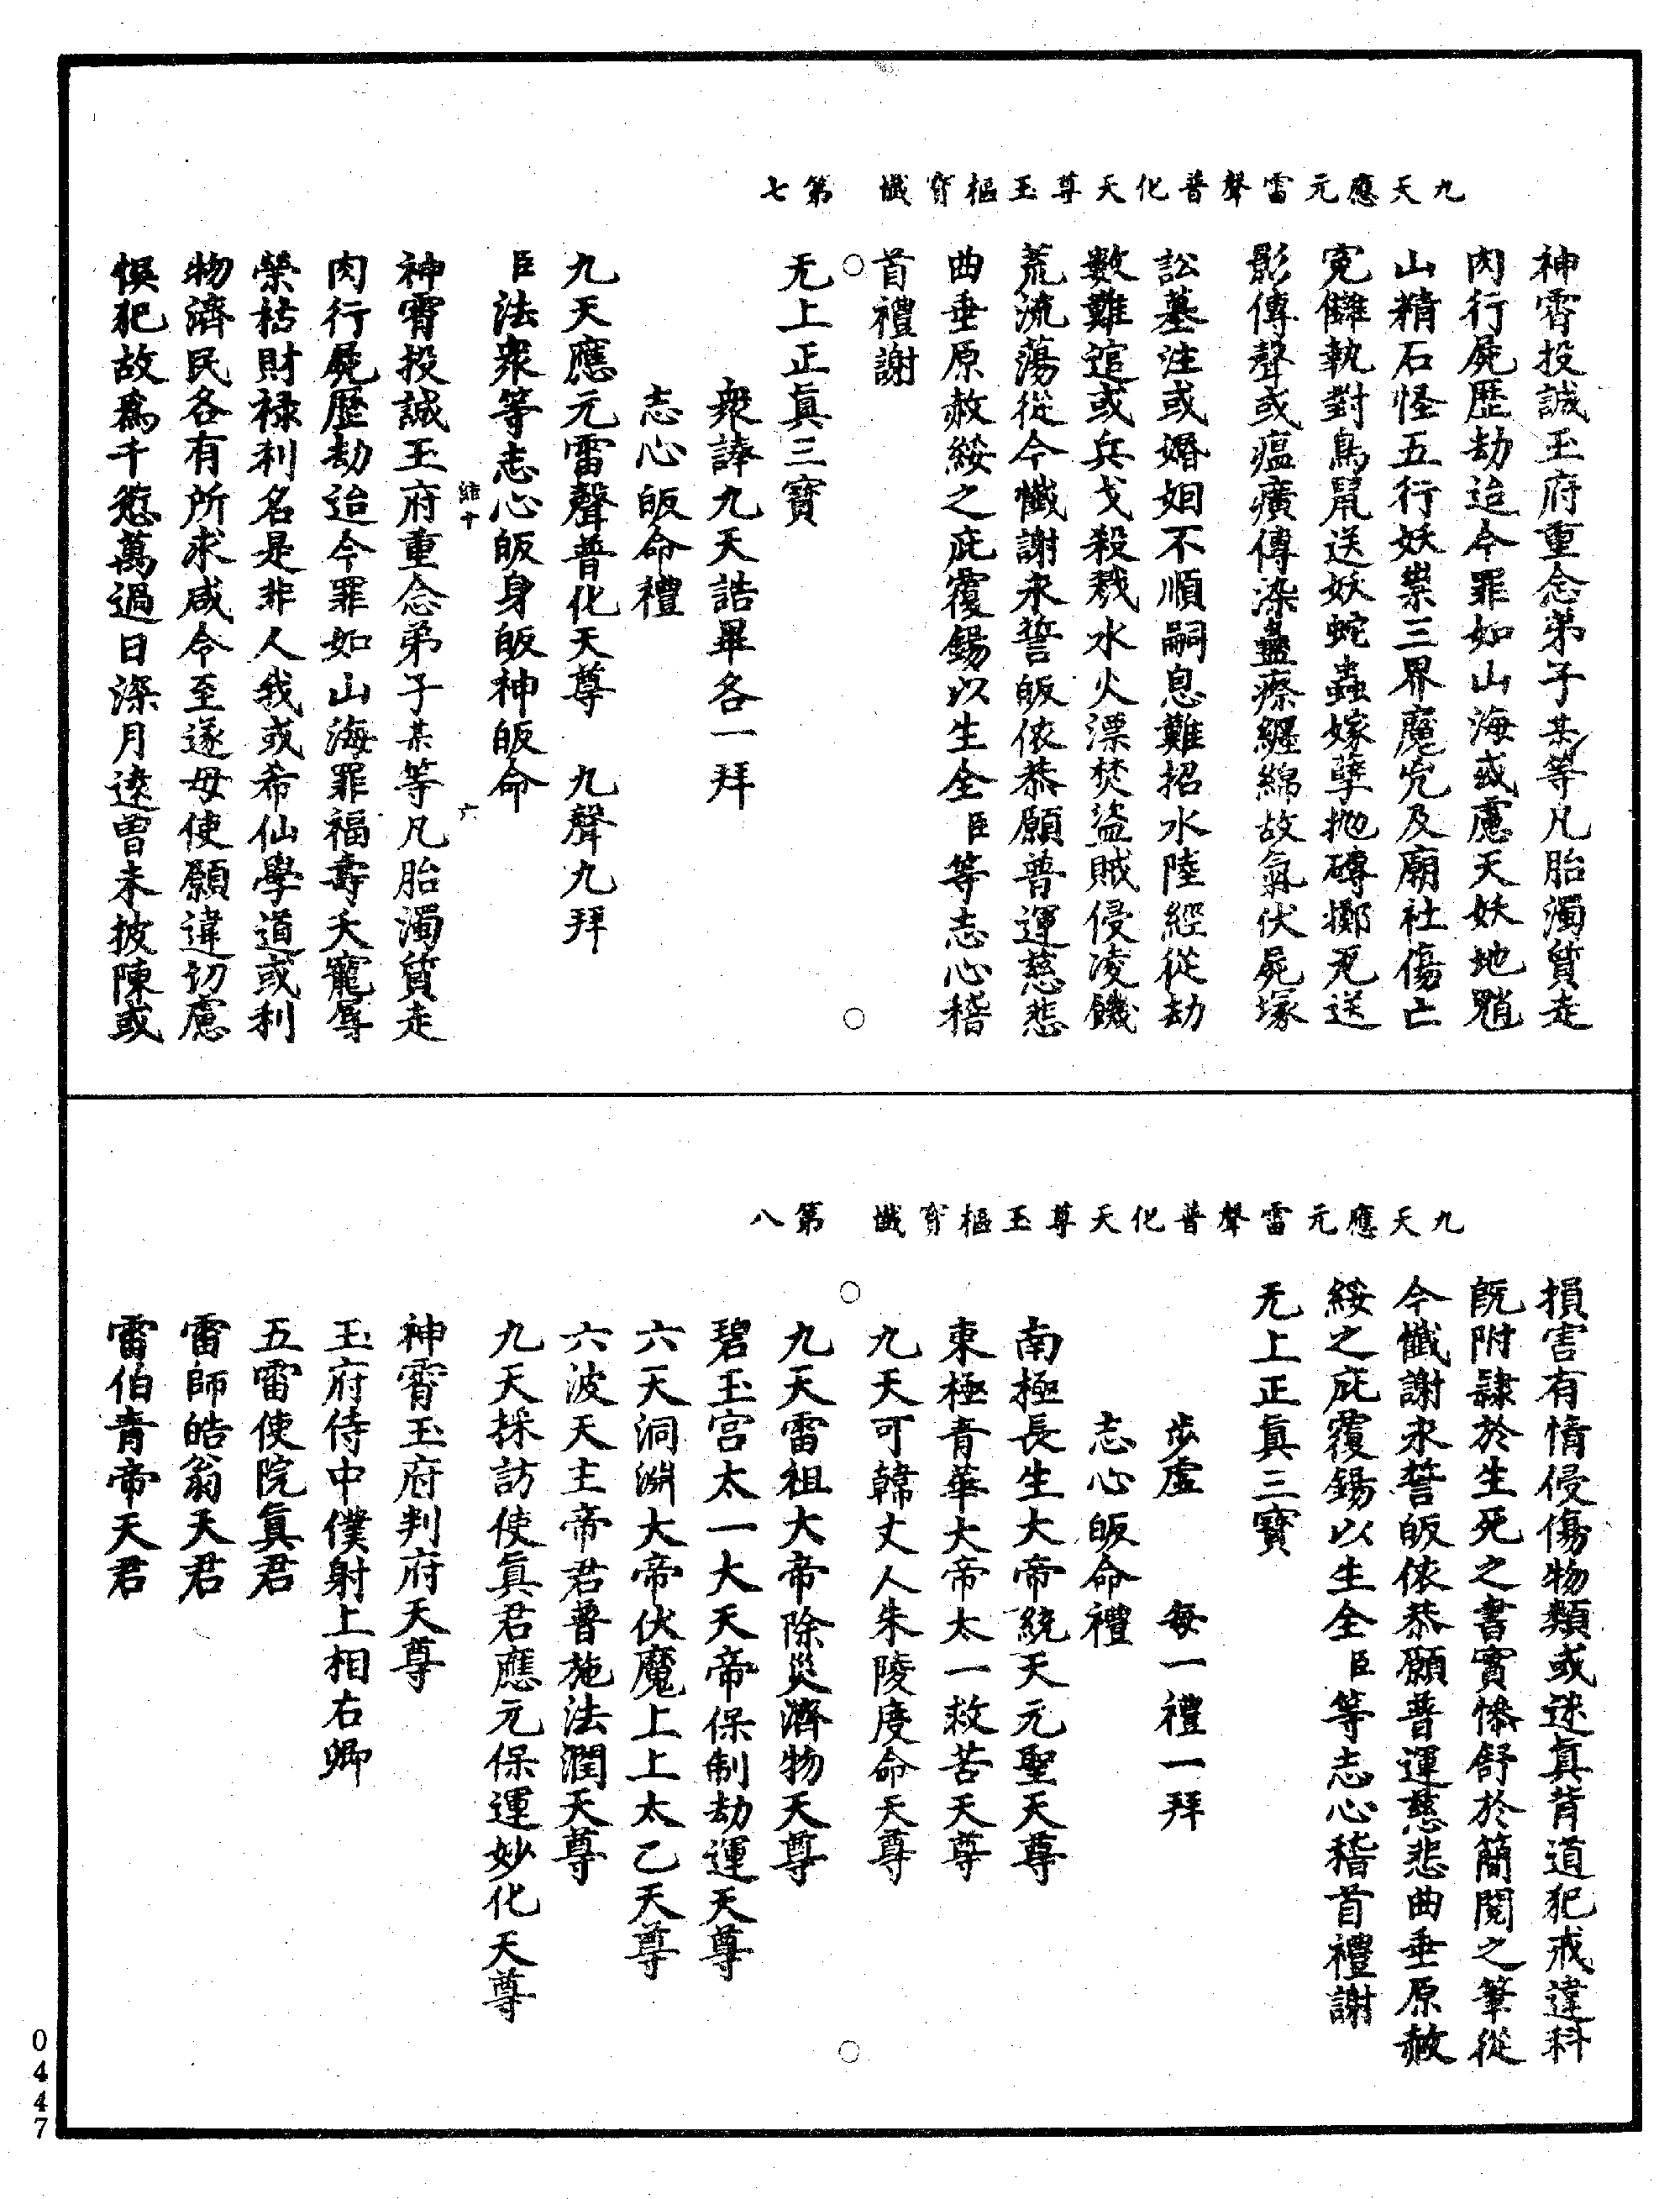 九天應元雷聲普化天尊玉樞寳懺 第七
神霄投誠玉府重念弟子某等凡胎濁質走
肉行屍歷劫迨今罪如山海或慮天妖地魈
山精石怪五行妖祟三界魔宄及廟社傷亡
寃讎執對鳥鼠送妖蛇蟲嫁孽抛磚擲瓦送
影傳聲或瘟㾮傳染蠱瘵纒綿故氣伏屍塚
訟墓注或婚姻不順嗣息難招水陸經從劫
數難逭或兵戈殺戮水火漂焚盜賊侵凌饑
荒流蕩從今懺謝永誓皈依恭願普運慈悲
曲垂原赦綏之庇覆錫以生全臣等志心稽
首禮謝
无上正眞三寳
衆諱九天誥畢各一拜
志心皈命禮
九天應元雷聲普化天尊 九聲九拜
臣法衆等志心皈身皈神皈命
神霄投誠玉府重念弟子某等凡胎濁質走
肉行屍歷劫迨今罪如山海罪福壽夭寵辱
榮枯財禄利名是非人我或希仙學道或利
物濟民各有所求咸令至遂毋使願違切慮
悞犯故爲千愆萬過日深月逺曾未披陳或
九天應元雷聲普化天尊玉樞寳懺 第八
損害有情侵傷物類或迷眞背道犯戒違科
旣附隷於生死之書實慘舒於簡閱之筆從
今懺謝永誓皈依恭願普運慈悲曲垂原赦
綏之庇覆錫以生全臣等志心稽首禮謝
无上正眞三寳
步虛 每一禮一拜
志心皈命禮
南極長生大帝統天元聖天尊
東極青華大帝太一救苦天尊
九天可韓丈人朱陵度命天尊
九天雷祖大帝除災濟物天尊
碧玉宫太一大天帝保制劫運天尊
六天洞淵大帝伏魔上上太乙天尊
六波天主帝君普施法潤天尊
九天採訪使眞君應元保運妙化天尊
神霄玉府判府天尊
玉府侍中僕射上相右卿
五雷使院眞君
雷師皓翁天君
雷伯青帝天君
0447